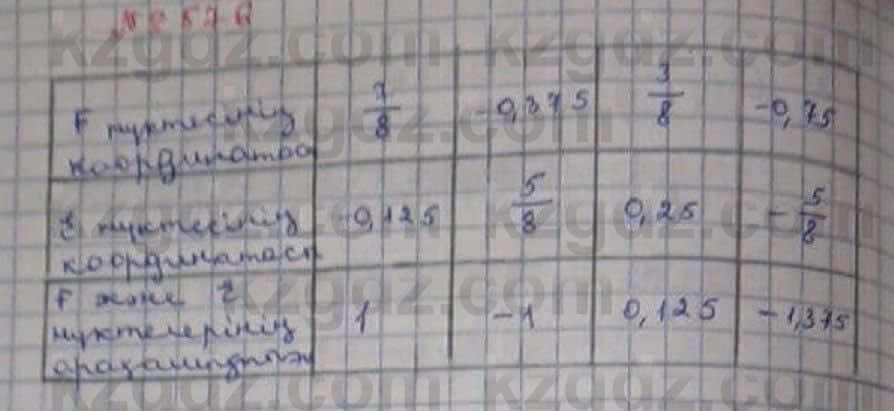 F нүктесінің координатасы | 7/8 | -0,375 | 3/8 | -0,75
нүктесінің координатасы | -0,125 | 5/8 | 0,25 | -5/8
F және
нүктелерінің | 1 | -1 | 0,125 | -1,375
арақашықтығы
kzgdz.com